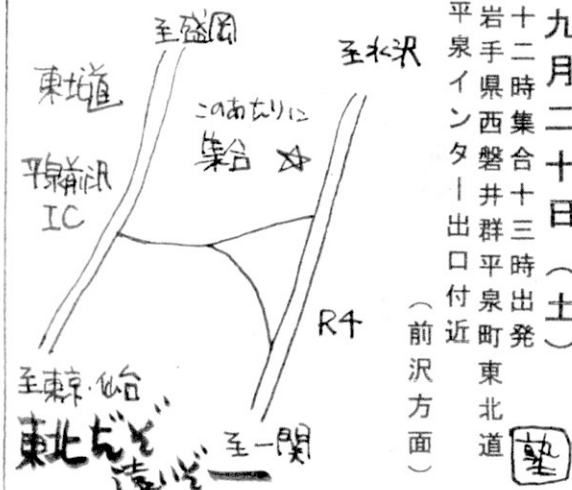 九月二十日（土）
十二時集合十三時出発
岩手県西磐井群平泉町東北道
平泉インター出口付近
（前沢方面）
塾
至盛岡
至水沢
東北道
このあたりに
集合 ☆
平泉前沢
IC
R4
至東京・仙台
至一関
東北だぞ
遠いぞー